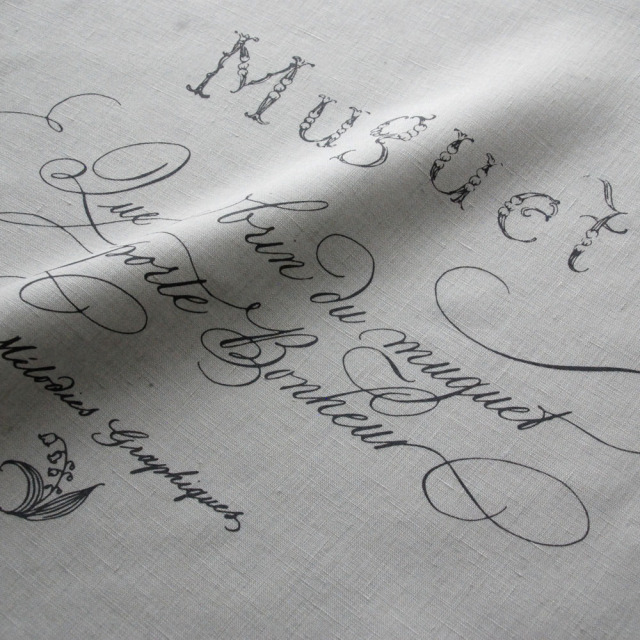 Muguet
Que brin du muguet
porte Bonheur
Mélodies Graphiques